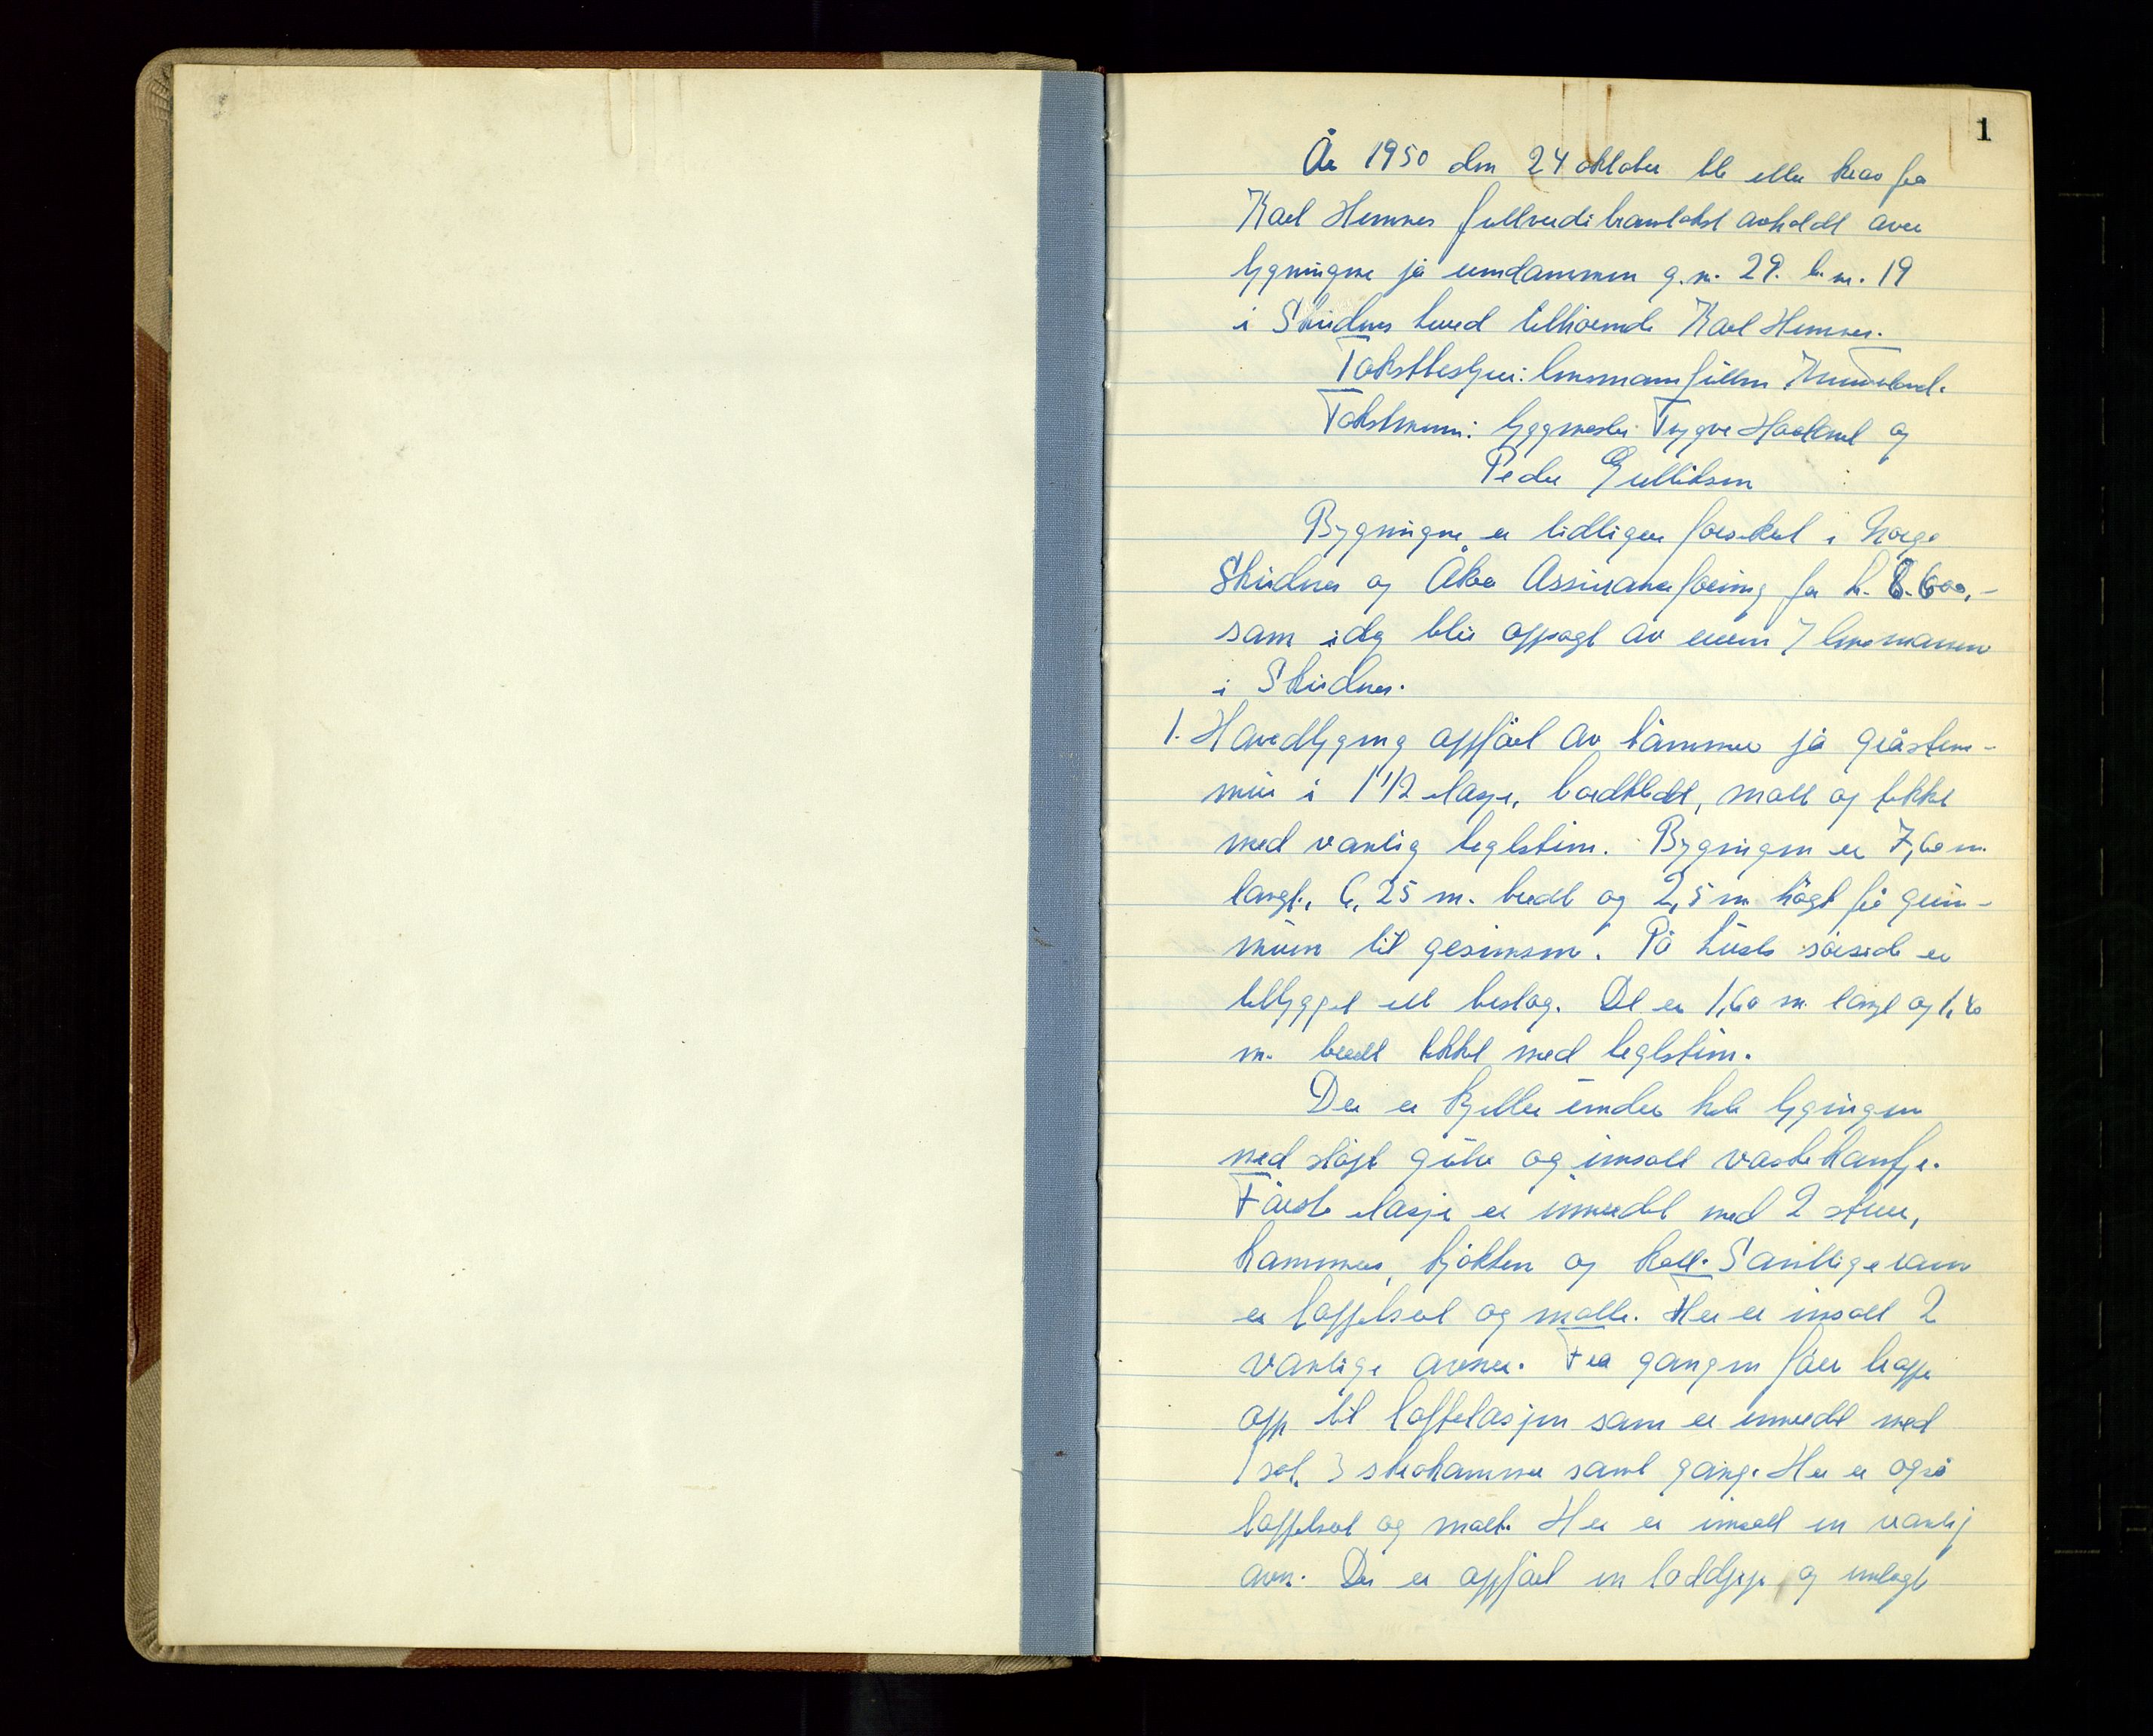 1
År 1950 den 24 oktober ble etter krav fra
Karl Hemnes fullverdi branntakst avholdt over
bygningene på eiendommen g.nr. 29. b.nr. 19
i Skudnes herred tilhørende Karl Hemnes.
Takstbestyrer: lensmannfullm.
Takstmenn: byggmester Trygve Hovland og
Peder Gulliksen
Bygningene er tidligere forsikret i Norge
Skudnes og Åkra Assuranseforening for kr. 8.600,-
som idag blir oppsagt av eieren / lensmannen
i Skudnes.
1. Hovedbygning oppført av tømmer på gråstens-
mur i 1 1/2 etasje, bordkledt, malt og tekket
med vanlig teglsten. Bygningen er 7,60 m.
langt, 6,25 m. bredt og 2,5 m høgt frå grunn-
muren til gesimsen. På husets sørside er
tilbygget ett bislag. Det er 1,60 m. langt og 1,40
m. bredt tekket med teglsten.
Der er kjeller under hele bygningen
med støpt gulv og innsatt vaskekomfyr.
Første etasje er innredet med 2 stuer,
kammers, kjøkken og hall. Samtlige rom
er tapetsert og malte. Her er innsatt 2
vanlige ovner. Fra gangen fører trapp
opp til loftetasjen som er innredet med
1 sal, 3 skråkammer samt gang. Her er også
tapetsert og malt. Her er innsatt en vanlig
ovn. Der er oppført en loddpipe og innlagt